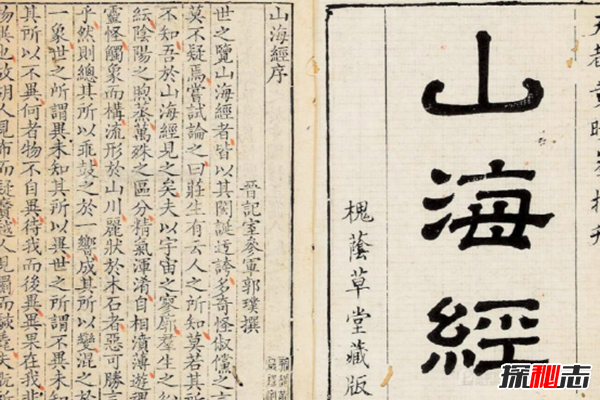 山海經
槐蔭草堂藏版
山海經序
晉記室參軍郭璞撰
世之覽山海經者皆以其閎誕迂誇多奇怪俶儻之言
莫不疑焉嘗試論之曰莊生有云人之所知莫若其所
不知吾於山海經見之矣夫以宇宙之寥廓羣生之
紜陰陽之煦蒸萬殊之區分精氣渾淆自相濆薄遊
靈怪觸象而構流形於山川麗狀於木石者惡可勝言
乎然則總其所以乖鼓之於一響成其所以變混之於
一象世之所謂異未知其所以異世之所謂不異未知
其所以不異何者物不自異待我而後異異果在我非
物異也故胡人見布而疑黂越人見罽而駭毳夫
探秘志